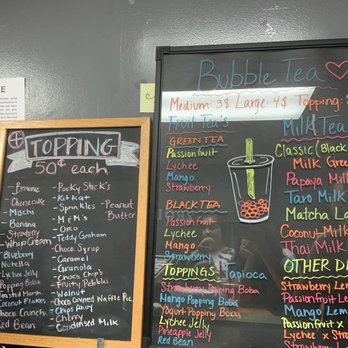 TOPPING
50¢ each
Brownie
Cheesecake
Mochi
Banana
Strawberry
Whip Cream
Blueberry
Nutella
Lychee Jelly
Popping Boba
Toasted Marsh
Coconut Flakes
Choco Crunch
Red Bean
Pocky Stick's
Kit Kat
Sprinkles
M&M's
Oreo
Teddy Graham
Choco Syrup
Caramel
Granola
Choco Chip's
Fruity Pebbles
Walnut
Choco Covered Waffle Pie
Chips Ahoy
Cherry
Condensed Milk
Peanut
Butter
Bubble Tea
Medium: 3$ Large: 4$ Topping:
Fruit Tea's
GREEN TEA
Passionfruit
Lychee
Mango
Strawberry
BLACK TEA
Passionfruit
Lychee
Mango
Strawberry
TOPPINGS: Tapioca
Strawberry Popping Boba
Mango Popping Boba
Yogurt Popping Boba
Lychee Jelly
Pineapple Jelly
Red Bean
Milk Tea
Classic (Black
Milk Green
Papaya Milk
Taro Milk
Matcha La
Coconut Milk
Thai Milk
OTHER D
Strawberry Lem
Passionfruit Lem
Mango Lem
Passionfruit x
Lychee x
Strawberry x